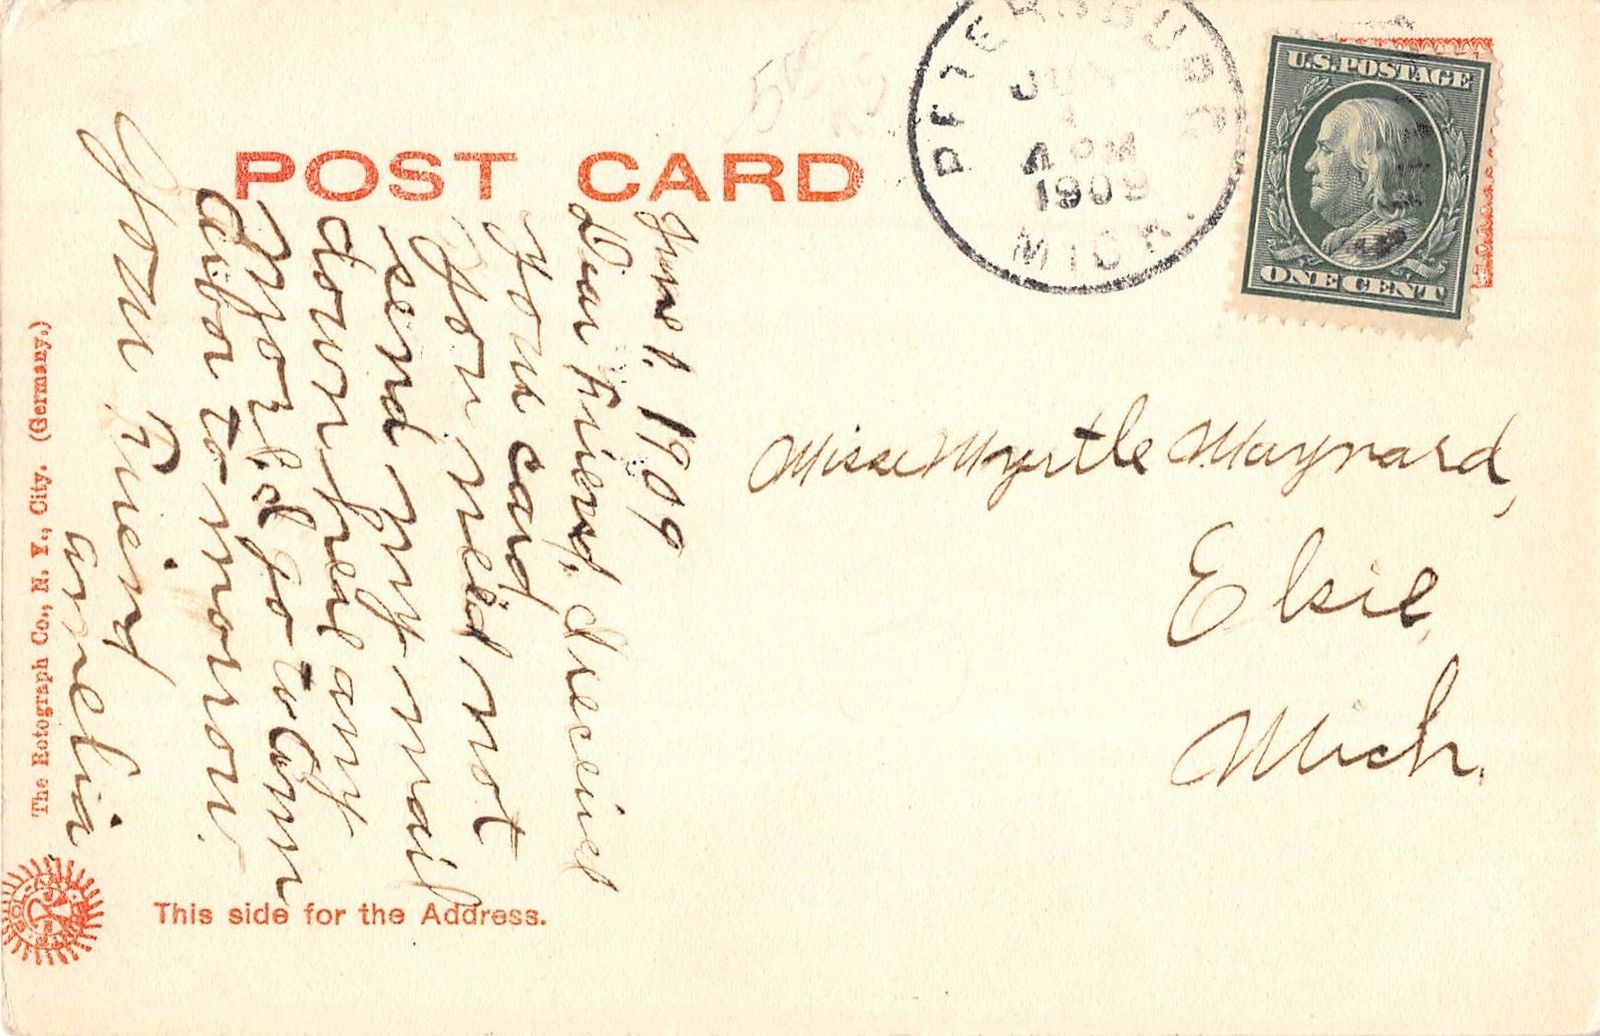 POST CARD
PETERSBURG
JUN
1
4 PM
1909
MICH.
U.S.POSTAGE
ONE CENT
June 1. 1909
Dear Friend, I received
your card
you need not
send my mail
down here any
more. I'd go to Ann
Arbor to morrow.
Your Friend
Amelia
Misse Myrtle Maynard,
Elsie,
Mich.
The Rotograph Co., N. Y., City. (Germany.)
This side for the Address.